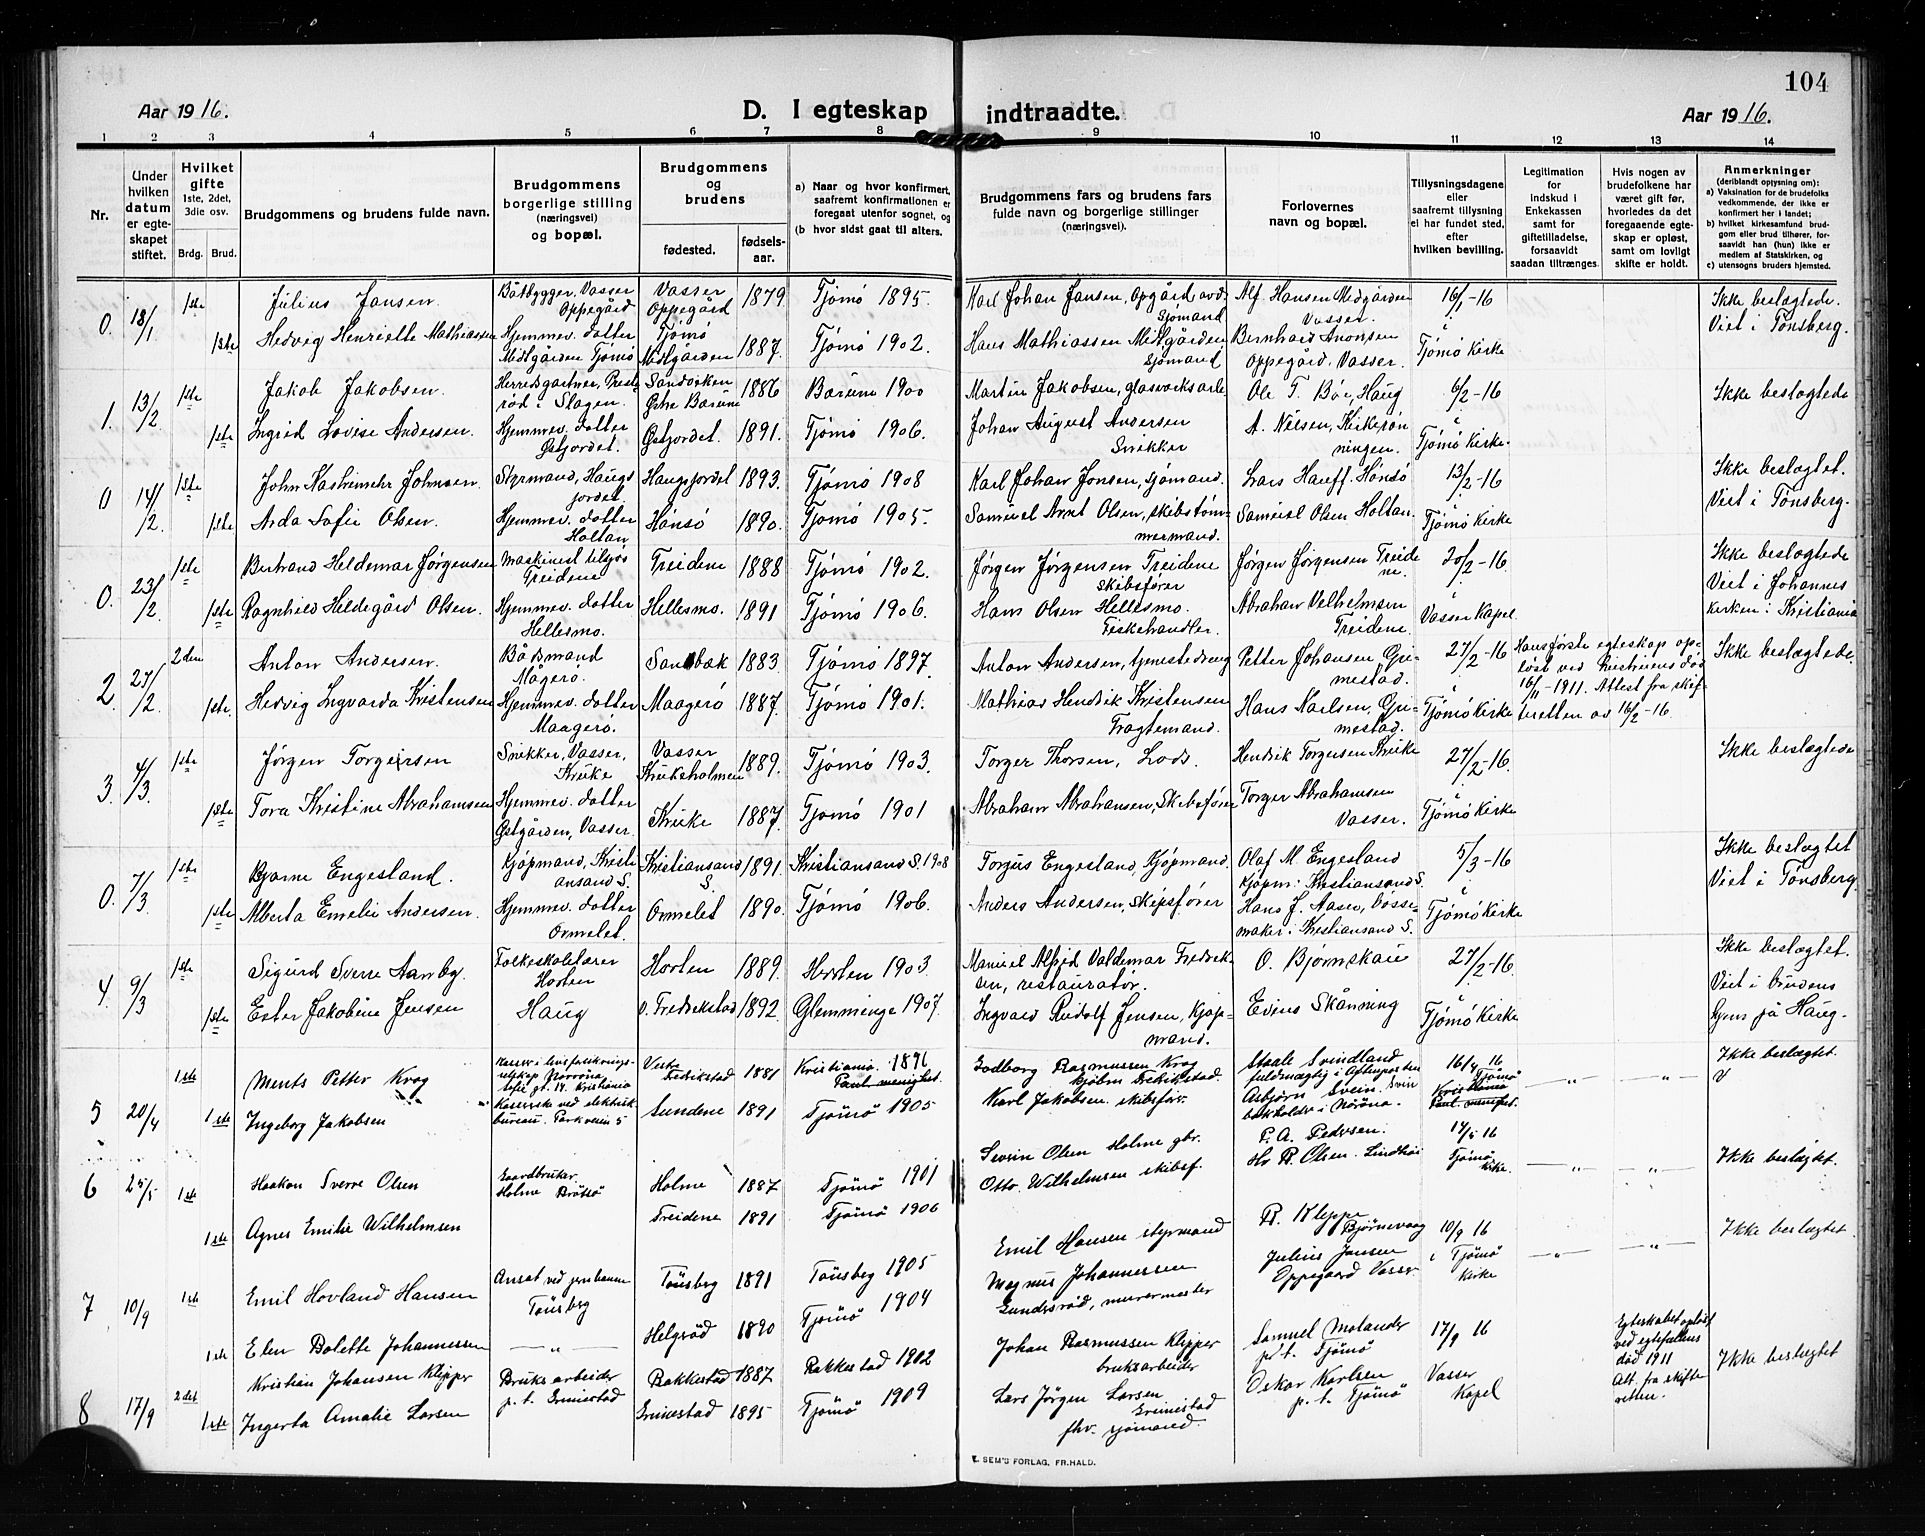 104
Aar 1916.
D. I egteskap indtraadte.
Aar 1916.
1 2 3 4 5 6 7 8 9 10 11 12 13 14
Nr.
Under hvilken datum er egte-skapet stiftet.
Hvilket gifte 1ste, 2det, 3die osv.
Brdg. Brud.
Brudgommens og brudens fulde navn.
Brudgommens borgerlige stilling (næringsvei) og bopæl.
Brudgommens og brudens
fødested. fødsels-aar.
a) Naar og hvor konfirmert, saafremt konfirmationen er foregaat utenfor sognet, og
(b hvor sidst gaat til alters.
Brudgommens fars og brudens fars fulde navn og borgerlige stillinger (næringsvei).
Forlovernes navn og bopæl.
Tillysningsdagene eller saafremt tillysning ei har fundet sted, efter hvilken bevilling.
Legitimation for Indskud i Enkekassen samt for giftetilladelse, forsaavidt saadan tiltrænges
Hvis nogen av brudefolkene har været gift før, hvorledes da det foregaaende egte-skap er opløst, samt om lovligt skifte er holdt.
Anmerkninger (deriblandt oplysning om):
a) Vaksination for de brudefolks vedkommende, der ikke er konfirmert her i landet;
b) hvilket kirkesamfund brud-gom eller brud tilhører, for-saavidt han (hun) ikke er medlem af Statskirken, og
c) utensogns bruders hjemsted.
0. 18/1 1ste Julius Jansen. Båtbygger, Vasser Oppegård Vasser Oppegård 1879 Tjømø 1895. Karl Johan Jansen, Opgård avd. Sjømand Alf Hansen Midgården Vasser. 16/1-16 Ikke beslegtede.
1ste Hedvig Henriette Mathiassen Hjemmev. dotter Midtgården Tjømø Tjømø Midtgården 1887. Tjømø 1902. Hans Mathiassen Midtgården Sjømand Bernhard Aronsen Oppegård. Vasser. i Tjømø Kirke Viet i Tønsberg.
1. 13/2 1ste Jakob Jakobsen. Herredsgartner, Prest-rød i Slagen. Sandviken Østre Bærum 1886 Bærum 1900 Martin Jakobsen, glasverksarb. Ole T. Bøe, Haug 6/2-16 Ikke beslegtede
1ste Ingrid Lovise Andersen. Hjemmev. dotter Østjordet. Østjordet. 1891. Tjømø 1906. Johan August Andersen Snikker A. Nilsen, Kirkerøn-ningen. i Tjømø Kirke.
0 14/2 1ste John Kashimehr Johnsen Styrmand, Haugs-jordet. Haugsjordet 1893. Tjømø 1908 Karl Johan Jonsen, sjømand. Lars Hauff. Hønsø 13/2-16 Ikke beslegtet.
1ste Arda Sofie Olsen. Hjemmev. dotter Holtan Hønsø 1890. Tjømø 1905. Samuel Arnt Olsen, skibstøm-mermand. Samuel Olsen Holtan. i Tjømø Kirke Viet i Tønsberg.
0. 23/2 1ste Bertrand Heldemar Jørgensen Maskinest tilsjøs Treidene Treidene 1888 Tjømø 1902. Jørgen Jørgensen Treidene skibsfører Jørgen Jørgensen Treide-ne. 20/2-16. Ikke beslegtede
1ste Ragnhild Heldegård Olsen. Hjemmev. dotter Hellesmo. Hellesmo. 1891 Tjømø 1906. Hans Olsen Hellesmo. Fiskehandler. Abraham Velhelmsen Treidene. i Vasser Kapel. Viet i Johannes kirken i Kristiania
2. 27/2 2den Anton Andersen. Bådsmand Mågerø. Sandbæk 1883 Tjømø 1897. Anton Andersen, tjenestedreng Petter Johansen Gri-mestad. 27/2-16 Hans første egteskap op-løst ved hustruens død 16/11-1911. Attest fra skif-teretten av 16/2-16. Ikke beslegtede.
1ste. Hedvig Ingvarda Kristensen Hjemmev. dotter Maagerø. Maagerø 1887. Tjømø 1901. Mathias Hendrik Kristensen Fragtemand. Hans Karlsen, Gri-mestad. i Tjømø Kirke
3. 4/3. 1ste Jørgen Torgersen Snikker, Vasser, Kruke Vasser Krukeholmen 1889. Tjømø 1903. Torger Thorsen, Lods. Hendrik Torgersen Kruke 27/2-16. Ikke beslegtede
1ste Tora Kristine Abrahamsen Hjemmev. dotter Østgården, Vasser. Kruke 1887. Tjømø 1901 Abraham Abrahansen, Skibsfører Torger Abrahamsen Vasser. i Tjømø Kirke
0. 7/3 1ste Bjarne Engesland. Kjøpmand, Kristi-ansand S. Kristiansand S. 1891. Kristiansand S. 1908 Torgus Engesland, Kjøpmand. Olaf M. Engesland kjøpm: Kristiansand S. 5/3-16 Ikke beslegtet
1ste Alberta Emelie Andersen. Hjemmev. dotter Ormelet. Ormelet 1890. Tjømø 1906. Anders Andersen, skipsfører Hans J. Aasen, bøsse-maker i Kristiansand S. i Tjømø Kirke Viet i Tønsberg.
4. 9/3 1ste Sigurd Sverre Aamby. Folkeskolelærer Horten Horten 1889. Horten 1903. Manuel Alfred Valdemar Fredrik-sen, restauratør. O. Bjørnskau 27/2-16. Ikke beslegtet.
1ste Ester Jakobine Jensen Haug O. Fredrikstad 1892. Glemminge 1907. Ingvald Rudolf Jensen, Kjøp-mand. Evens Skånning i Tjømø Kirke Viet i brudens hjem på Haug.
5 20/4 1ste Ments Petter Krog Kasser i livsforsikrings-selskap Norrøna, Sofie gt. 14. Kristiania Vestr. Fredrikstad 1881 Kristiania. 1896 Paul. menighet. Godborg Rasmussen Krog kjøbm. Fredrikstad. Staale Svindland fuldmægtig i Aftenposten 16/4 16 Tjømø -"- -"- Ikke beslegtet.
1ste Ingeborg Jakobsen Kaserske ved elektrisk bureau. Parkveien 5 Sundene 1891 Tjømø 1905 Karl Jakobsen. skibsfør. Asbjørn Svein. Svin bokholder i Norøna. Kristiania Paul. menighet. V
6 25/5 1ste Haakon Sverre Olsen Gaardbruker. Holme Brøtsø Holme 1887 Tjømø 1901 Severin Olsen Holme gbr. P. A. Pedersen. 14/5 16 -"- -"- Ikke beslegtet.
1ste Agnes Emilie Wilhelmsen Treidene 1891 Tjømø 1906 Otto Wilhelmsen skibsf. Hr R. Olsen. Lindhøi Tjømø kirke.
7 10/9 1ste Emil Hovland Hansen Ansat ved jernbanen Tønsberg Tønsberg 1891 Tønsberg 1905 Emil Hansen styrmand R. Kleppe Bjørnevaag 10/9 16 -"- -"- Ikke beslegtet.
1ste Elen Bolette Johannessen -"- Helgerød 1890 Tjømø 1904 Magnus Johannessen Gundersrød, murermester Julius Jansen Oppegaard Vasser i Tjømø Kirke
8 17/9 2det Kristian Johansen Klepper Bruksarbeider p. t. Grimestad Rakkestad 1887 Rakkestad 1902 Johan Rasmussen Klepper bruksarbeider Samuel Molander p. t. Tjømø 17/9 16 Egteskabet opløst ved egtefællens død 1911 Att. fra skifte-retten. Ikke beslegtet
1ste Ingerta Amalie Larsen Grimestad 1895 Tjømø 1909 Lars Jørgen Larsen Grimestad fhv. sjømand. Oskar Karlsen p. t. Tjømø Vasser Kapel
E. SEM'S FORLAG, FR.HALD.